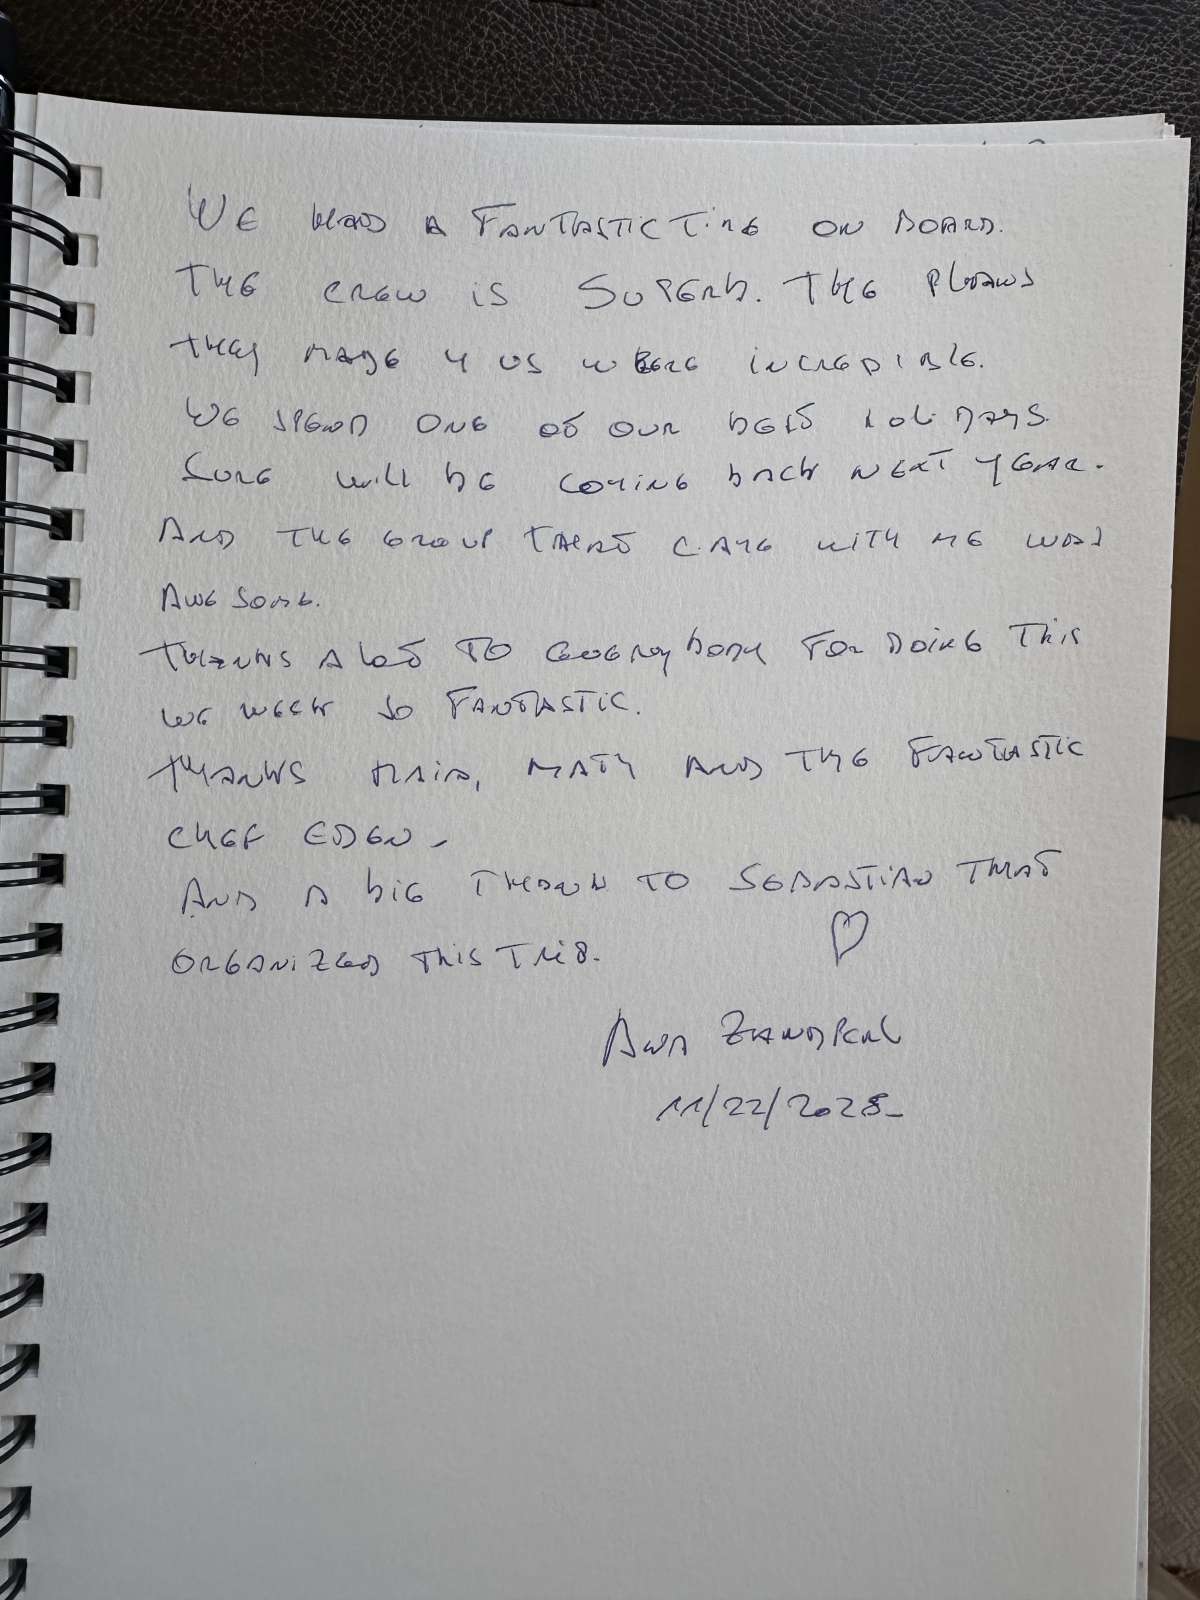 WE HAD A FANTASTIC TIME ON BOARD.
THE CREW IS SUPERB. THE PLANS
THEY MADE 4 US WERE INCREDIBLE.
WE SPEND ONE OF OUR BEST HOLIDAYS.
SURE WILL BE COMING BACK NEXT YEAR.
AND THE GROUP THAT CAME WITH ME WAS
AWESOME.
THANKS A LOT TO EVERYBODY FOR DOING THIS
WE WEEK SO FANTASTIC.
THANKS MAIA, MATY AND THE FANTASTIC
CHEF EDEN -
AND A BIG THANK TO SEBASTIAN THAT
ORGANIZED THIS TRIP.
ANA
11/22/2025-